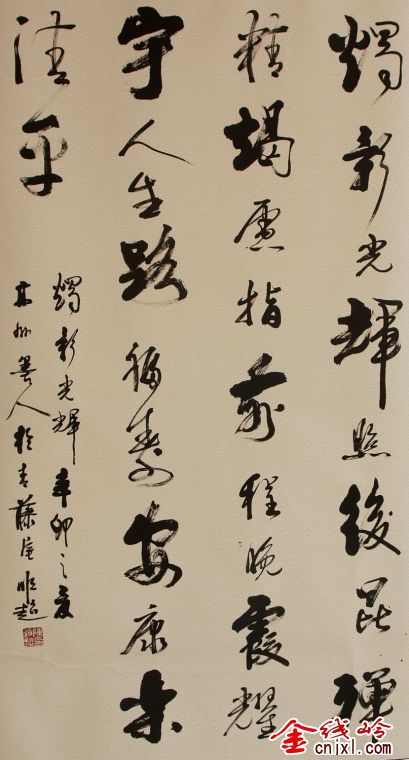 燭影光輝照後昆殫
精竭慮指前程晚霞耀
宇人生路福壽安康樂
清平
燭影光輝辛卯之夏
州墨人於青藤庵
金线岭
cnjxl.com